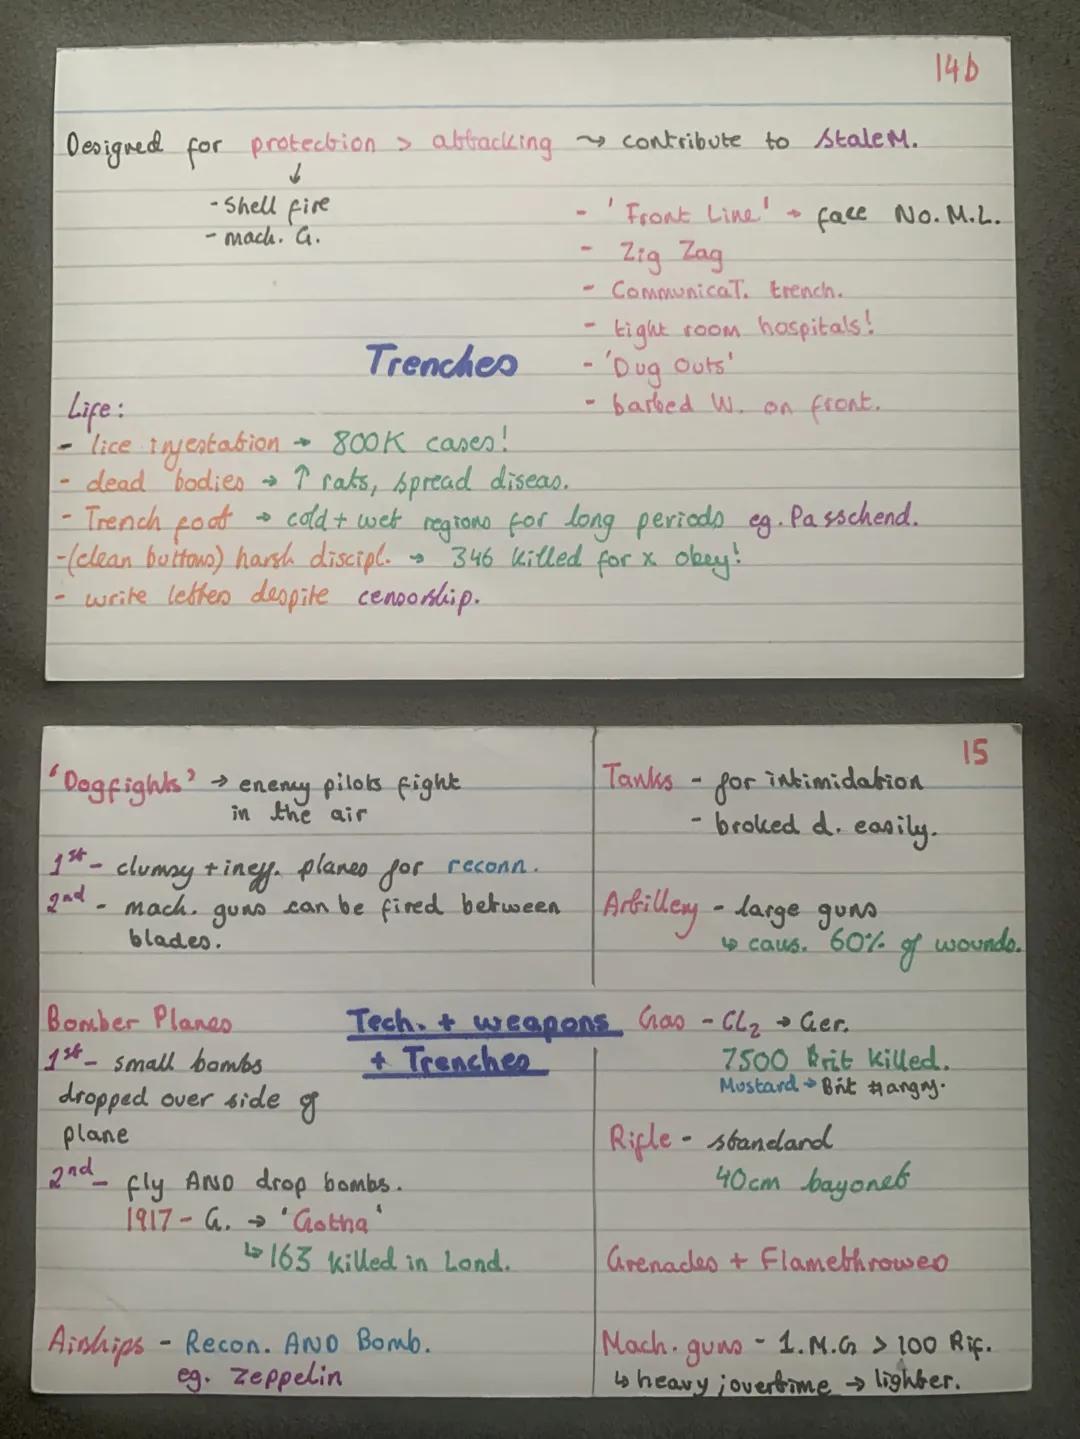 14b
Designed for protection > attacking ⤳ contribute to staleM.
↓
- Shell fire
- mach. G.
- 'Front Line' → face No. M.L.
- Zig Zag
- CommunicaT. trench.
- tight room hospitals!
- 'Dug Outs'
- barbed W. on front.
Trenches
Life:
- lice infestation → 800K cases!
- dead bodies → ↑ rats, spread diseas.
- Trench foot → cold + wet regions for long periods eg. Passchend.
- (clean buttons) harsh discipl. → 346 killed for x obey!
- write letters despite censorship.
15
'Dogfights' → enemy pilots fight
in the air
1st - clumsy + ineff. planes for reconn.
2nd - mach. guns can be fired between
blades.
Tanks - for intimidation
- broked d. easily.
Artillery - large guns
↳ caus. 60% of wounds.
Tech. + weapons
+ Trenches
Bomber Planes
1st - small bombs
dropped over side of
plane
2nd - fly AND drop bombs.
1917 - G. → 'Gotha'
↳ 163 killed in Lond.
Airships - Recon. AND Bomb.
eg. Zeppelin
Gas - CL2 → Ger.
7500 Brit killed.
Mustard → Brit angry.
Rifle - standard
40cm bayonet
Grenades + Flamethrowers
Mach. guns - 1. M.G > 100 Rif.
↳ heavy ; overtime → lighter.